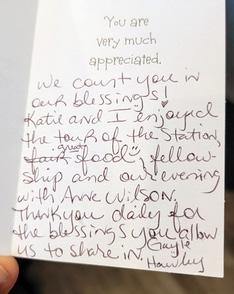 You are
very much
appreciated.
We count you in
our blessings!
Katie and I enjoyed
the tour of the Station,
great food, fellow-
ship and our evening
with Anne Wilson.
Thank you daily for
the blessings you allow
us to share in. Gayle
Hawley